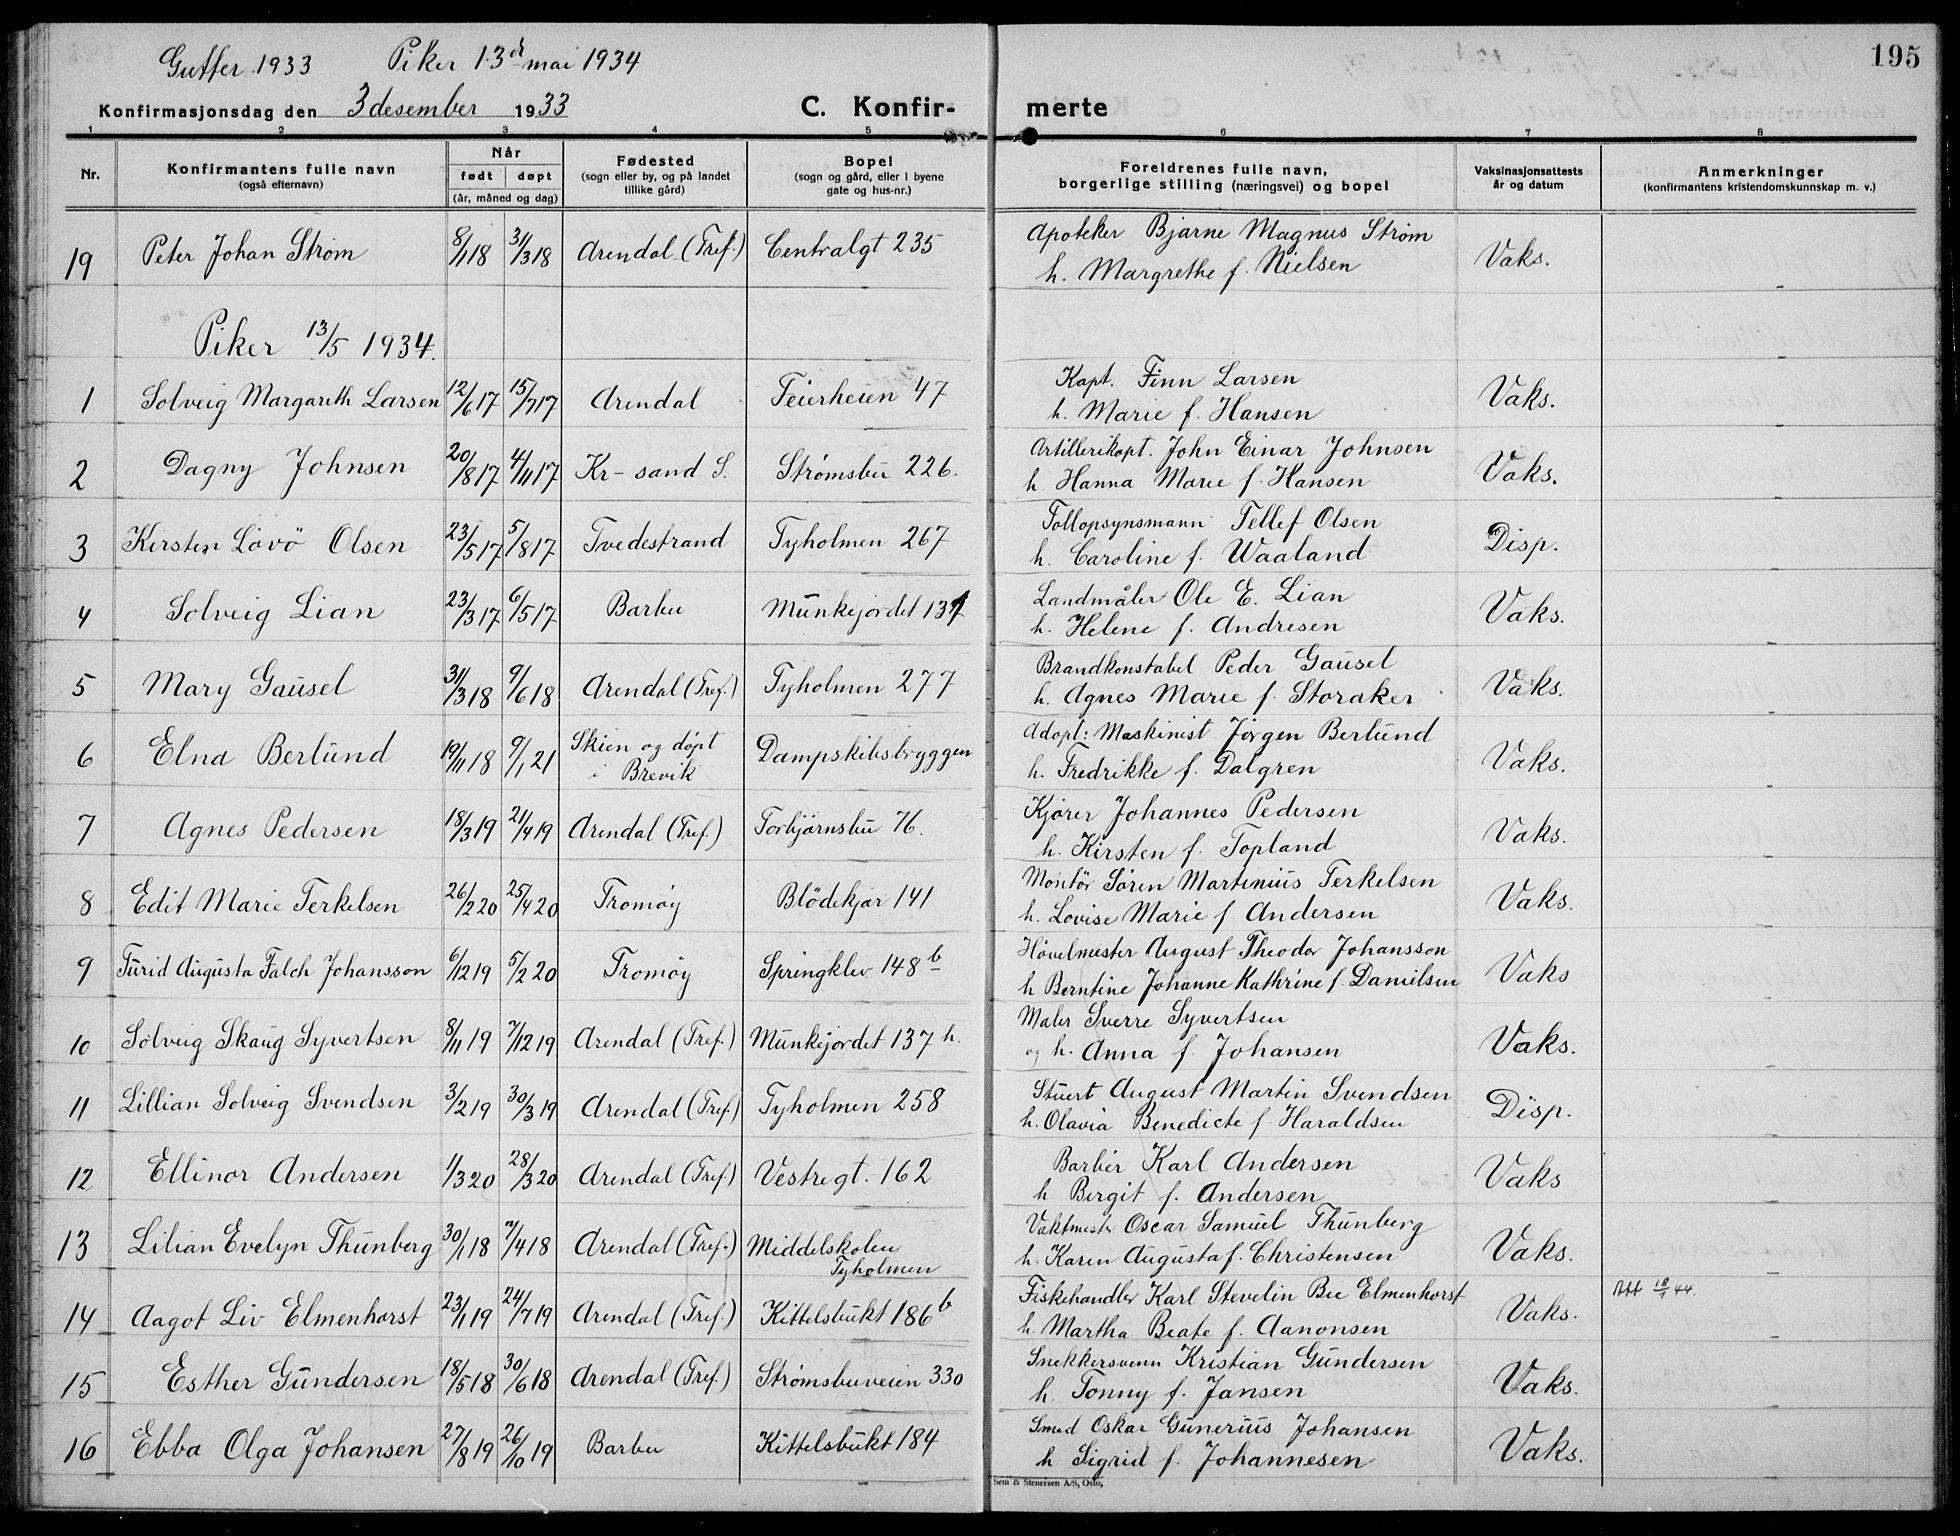 195
Gutter 1933 Piker 13d mai 1934
Konfirmasjonsdag den 3 desember 1933 C. Konfir- merte
1 2 3 4 5 6 7 8
Nr. Konfirmantens fulle navn (også efternavn) Når født døpt (år, måned og dag) Fødested (sogn eller by, og på landet tillike gård) Bopel (sogn og gård, eller i byene gate og hus-nr.) Foreldrenes fulle navn, borgerlige stilling (næringsvei) og bopel Vaksinasjonsattests år og datum Anmerkninger (konfirmantens kristendomskunnskap m. v.)
19 Peter Johan Strøm 8/1 18 31/3 18 Arendal (Tref.) Centralgt 235 Apoteker Bjarne Magnus Strøm Vaks.
h. Margrethe f. Nielsen
Piker 13/5 1934.
1 Solveig Margareth Larsen 12/6 17 15/7 17 Arendal Feierheien 47 Kapt. Finn Larsen Vaks.
h. Marie f. Hansen
2 Dagny Johnsen 20/8 17 4/11 17 Kr-sand S. Strømsbu 226. Artillerikapt. John Einar Johnsen Vaks.
h. Hanna Marie f. Hansen
3 Kirsten Lövö Olsen 23/5 17 5/8 17 Tvedestrand Tyholmen 267 Tollopsynsmann Tellef Olsen Disp.
h. Caroline f. Waaland
4 Solveig Lian 23/3 17 6/5 17 Barbu Munkejordet Landmåler Ole E. Lian Vaks.
h. Helene f. Andresen
5 Mary Gausel 31/3 18 9/6 18 Arendal (Tref.) Tyholmen 277 Brandkonstabel Peder Gausel Vaks.
h. Agnes Marie f. Storaker
6 Elna Berlund 19/11 18 9/1 21 Skien og døpt i Brevik Dampskibsbryggen Adopt: Maskinist Jørgen Berlund Vaks.
h. Fredrikke f. Dalgren
7 Agnes Pedersen 18/3 19 21/4 19 Arendal (Tref.) Torbjørnsbu 76. Kjører Johannes Pedersen Vaks.
h. Kirsten f. Topland
8 Edit Marie Terkelsen 26/2 20 25/4 20 Tromøy Blödekjær 141 Montör Sören Martinius Terkelsen Vaks.
h. Lovise Marie f. Andersen
9 Turid Augusta Falch Johansson 6/12 19 5/2 20 Tromøy Springklev 148 b Høvelmester August Theodor Johansson Vaks
h Berntine Johanne Kathrine f. Danielsen
10 Solveig Skaug Syvertsen 8/11 19 7/12 19 Arendal (Tref.) Munkejordet 137 h. Maler Sverre Syvertsen Vaks.
og h. Anna f. Johansen
11 Lillian Solveig Svendsen 3/2 19 30/3 19 Arendal (Tref.) Tyholmen 258 Stuert August Martin Svendsen Disp.
h. Olavia Benedicte f. Haraldsen
12 Ellinor Andersen 1/3 20 28/3 20 Arendal (Tref.) Vestregt. 162 Barbér Karl Andersen Vaks
h Bergit f. Andersen
13 Lilian Evelyn Thunberg 30/1 18 7/4 18 Arendal (Tref.) Middelskolen Tyholmen Vaktmester Oscar Samuel Thunberg Vaks.
h. Karen Augusta f. Christensen
14 Aagot Liv Elmenhorst 23/1 19 24/7 19 Arendal (Tref.) Kittelsbukt 186 b Fiskehandler Karl Stevelin Bie Elmenhorst Vaks. Att 18/1 44.
h. Martha Beate f. Aanonsen
15 Esther Gundersen 18/5 18 30/6 18 Arendal (Tref.) Strømsbuveien 330 Snekkersvenn Kristian Gundersen Vaks.
h. Tonny f. Jansen
16 Ebba Olga Johansen 27/8 19 26/10 19 Barbu Kittelsbukt 184 Smed Oskar Gunerius Johansen Vaks.
h Sigrid f. Johannesen
Sem & Stenersen A/S, Oslo.